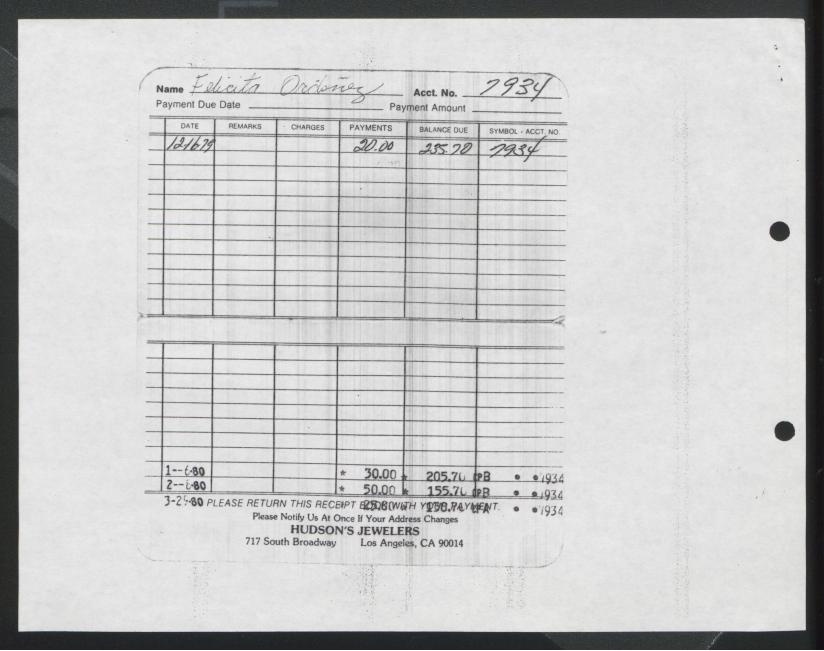 Name Felicita Ordoñez Acct. No. 7934
Payment Due Date Payment Amount
DATE REMARKS CHARGES PAYMENTS BALANCE DUE SYMBOL - ACCT. NO.
121679 20.00 235.70 7934
1--6-80 * 30.00 * 205.70 PB • •1934
2-- -80 * 50.00 * 155.70 PB • •1934
3-2 -80 PLEASE RETURN THIS RECEIPT BOOK WITH YOUR PAYMENT. • •1934
Please Notify Us At Once If Your Address Changes
HUDSON'S JEWELERS
717 South Broadway Los Angeles, CA 90014